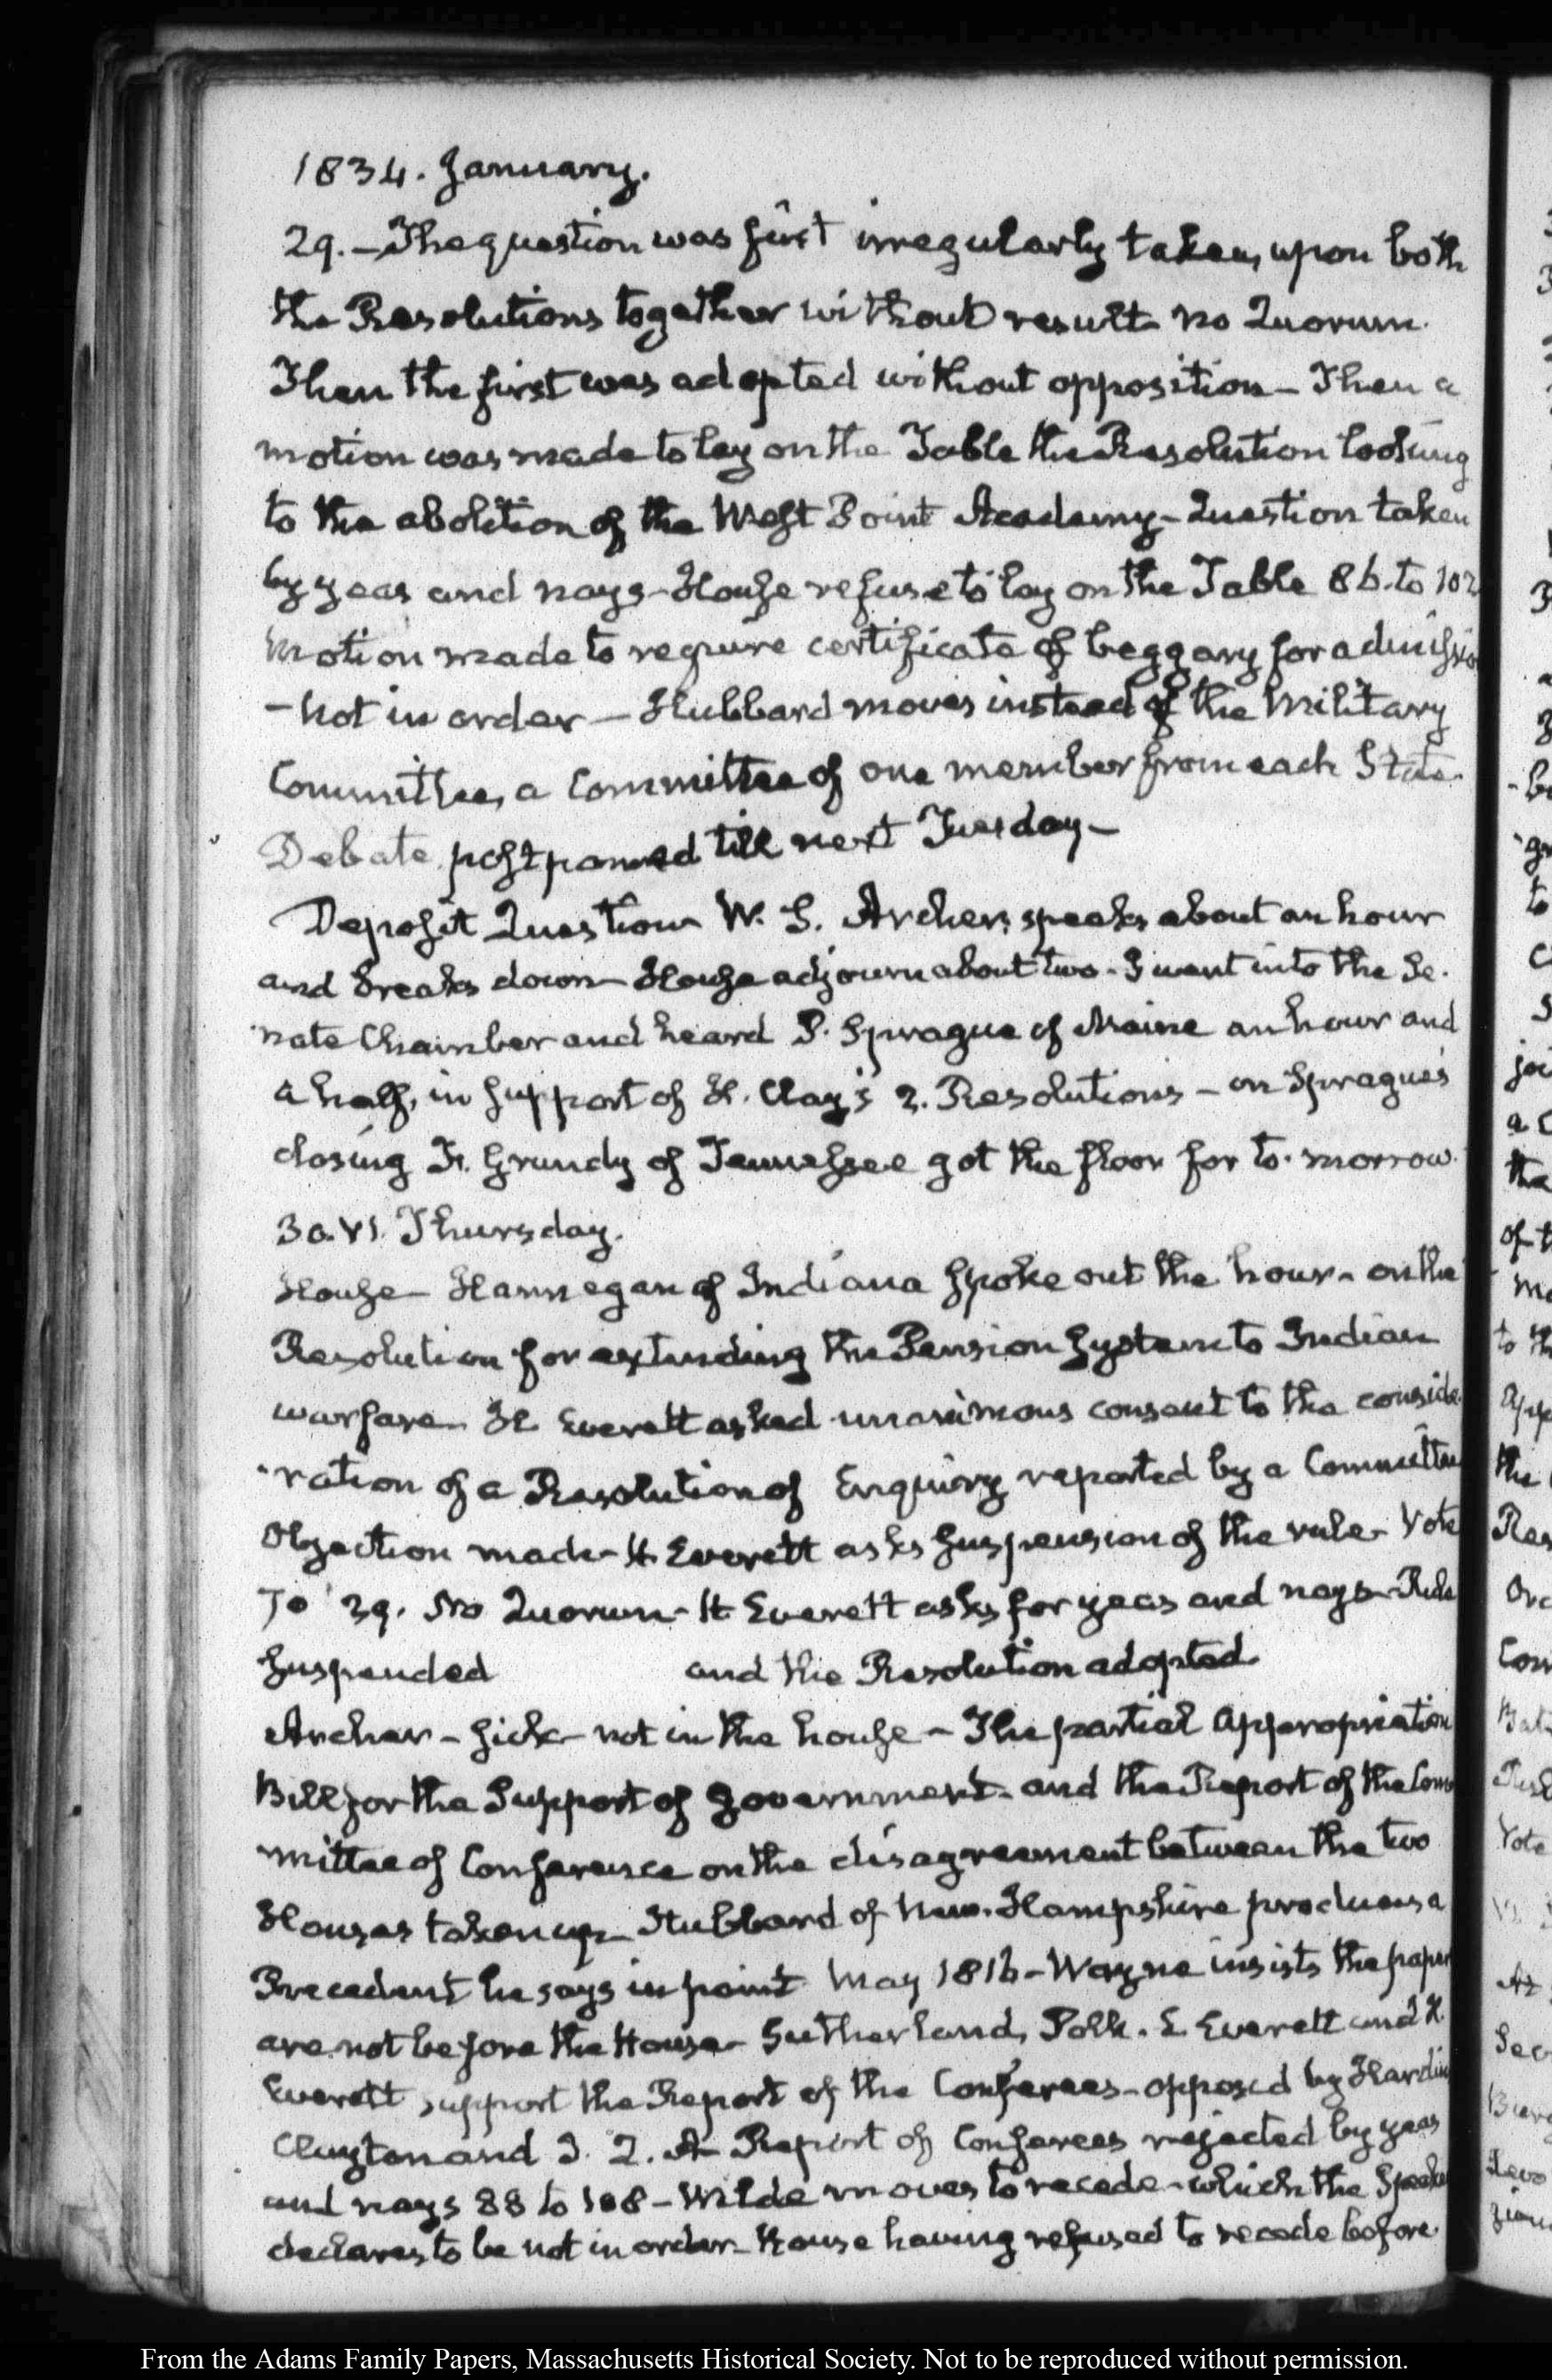 1834. January.
29. – The question was first irregularly taken, upon both
the Resolutions together without result no Quorum.
Then the first was adopted without opposition – Then a
motion was made to lay on the Table the Resolution looking
to the abolition of the West Point Academy – Question taken
by yeas and nays – House refuse to lay on the Table 86. to 102
Motion made to require certificate of beggary for admissio
– not in order – Hubbard moves instead of the Military
Committee, a Committee of one member from each State.
Debate postponed till next Tuesday –
Deposit Question W. S. Archer, speaks about an hour
and breaks down – House adjourn about two. I went into the Se-
nate Chamber and heard P. Sprague of Maine an hour and
a half, in support of H. Clay's 2. Resolutions – on Sprague's
closing F. Grundy of Tennessee got the floor for to-morrow.
30. VI. Thursday.
House – Hannegan of Indiana spoke out the hour – on the
Resolution for extending the Pension System to Indian
warfare – H Everett asked unanimous consent to the conside-
ration of a Resolution of Enquiry reported by a Committee
Objection made – H Everett asks suspension of the rule – Vote
70 39. No Quorum – H Everett asks for yeas and nays – Rule
suspended and the Resolution adopted
Archer – sick – not in the house – The partial Appropriation
Bill for the Support of Government – and the Report of the Com
mittee of Conference on the disagreement between the two
Houses taken up – Hubbard of New-Hampshire produces a
Precedent he says in point May 1816 – Wayne insists the paper
are not before the House – Sutherland, Polk. E Everett and H.
Everett support the Report of the Conferees – opposed by Hardin
Clayton and J. Q. A – Report of Conferees rejected by yeas
and nays 88 to 108 – Wilde moves to recede – which the Speaker
declares to be not in order – House having refused to recede before.
From the Adams Family Papers, Massachusetts Historical Society. Not to be reproduced without permission.